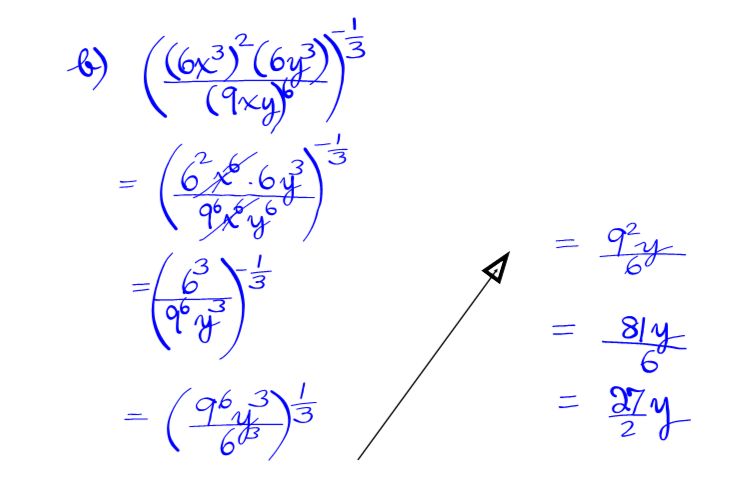 b) (((6x³)²(6y³))/(9xy)⁶)^(-1/3)
= ((6²x⁶·6y³)/(9⁶x⁶y⁶))^(-1/3)
= (6³/(9⁶y³))^(-1/3)
= ((9⁶y³)/6³)^(1/3)
= (9²y)/6
= (81y)/6
= (27/2)y